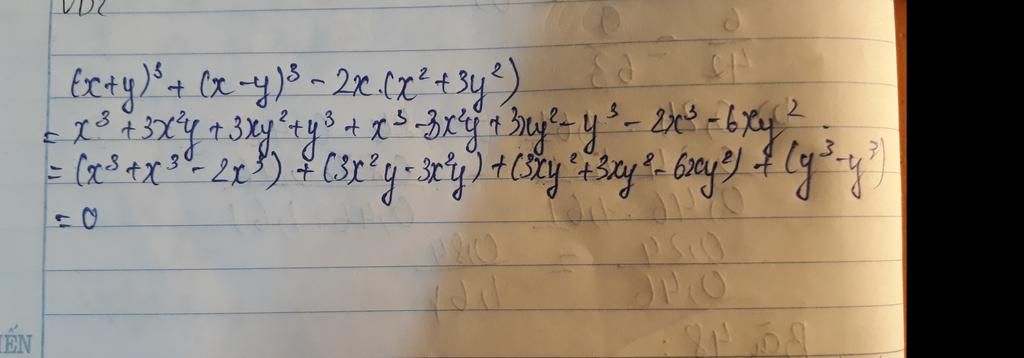 VD2
(x+y)³ + (x-y)³ - 2x.(x² + 3y²)
= x³ + 3x²y + 3xy² + y³ + x³ - 3x²y + 3xy² - y³ - 2x³ - 6xy²
= (x³ + x³ - 2x³) + (3x²y - 3x²y) + (3xy² + 3xy² - 6xy²) + (y³ - y³)
= 0
IẾN